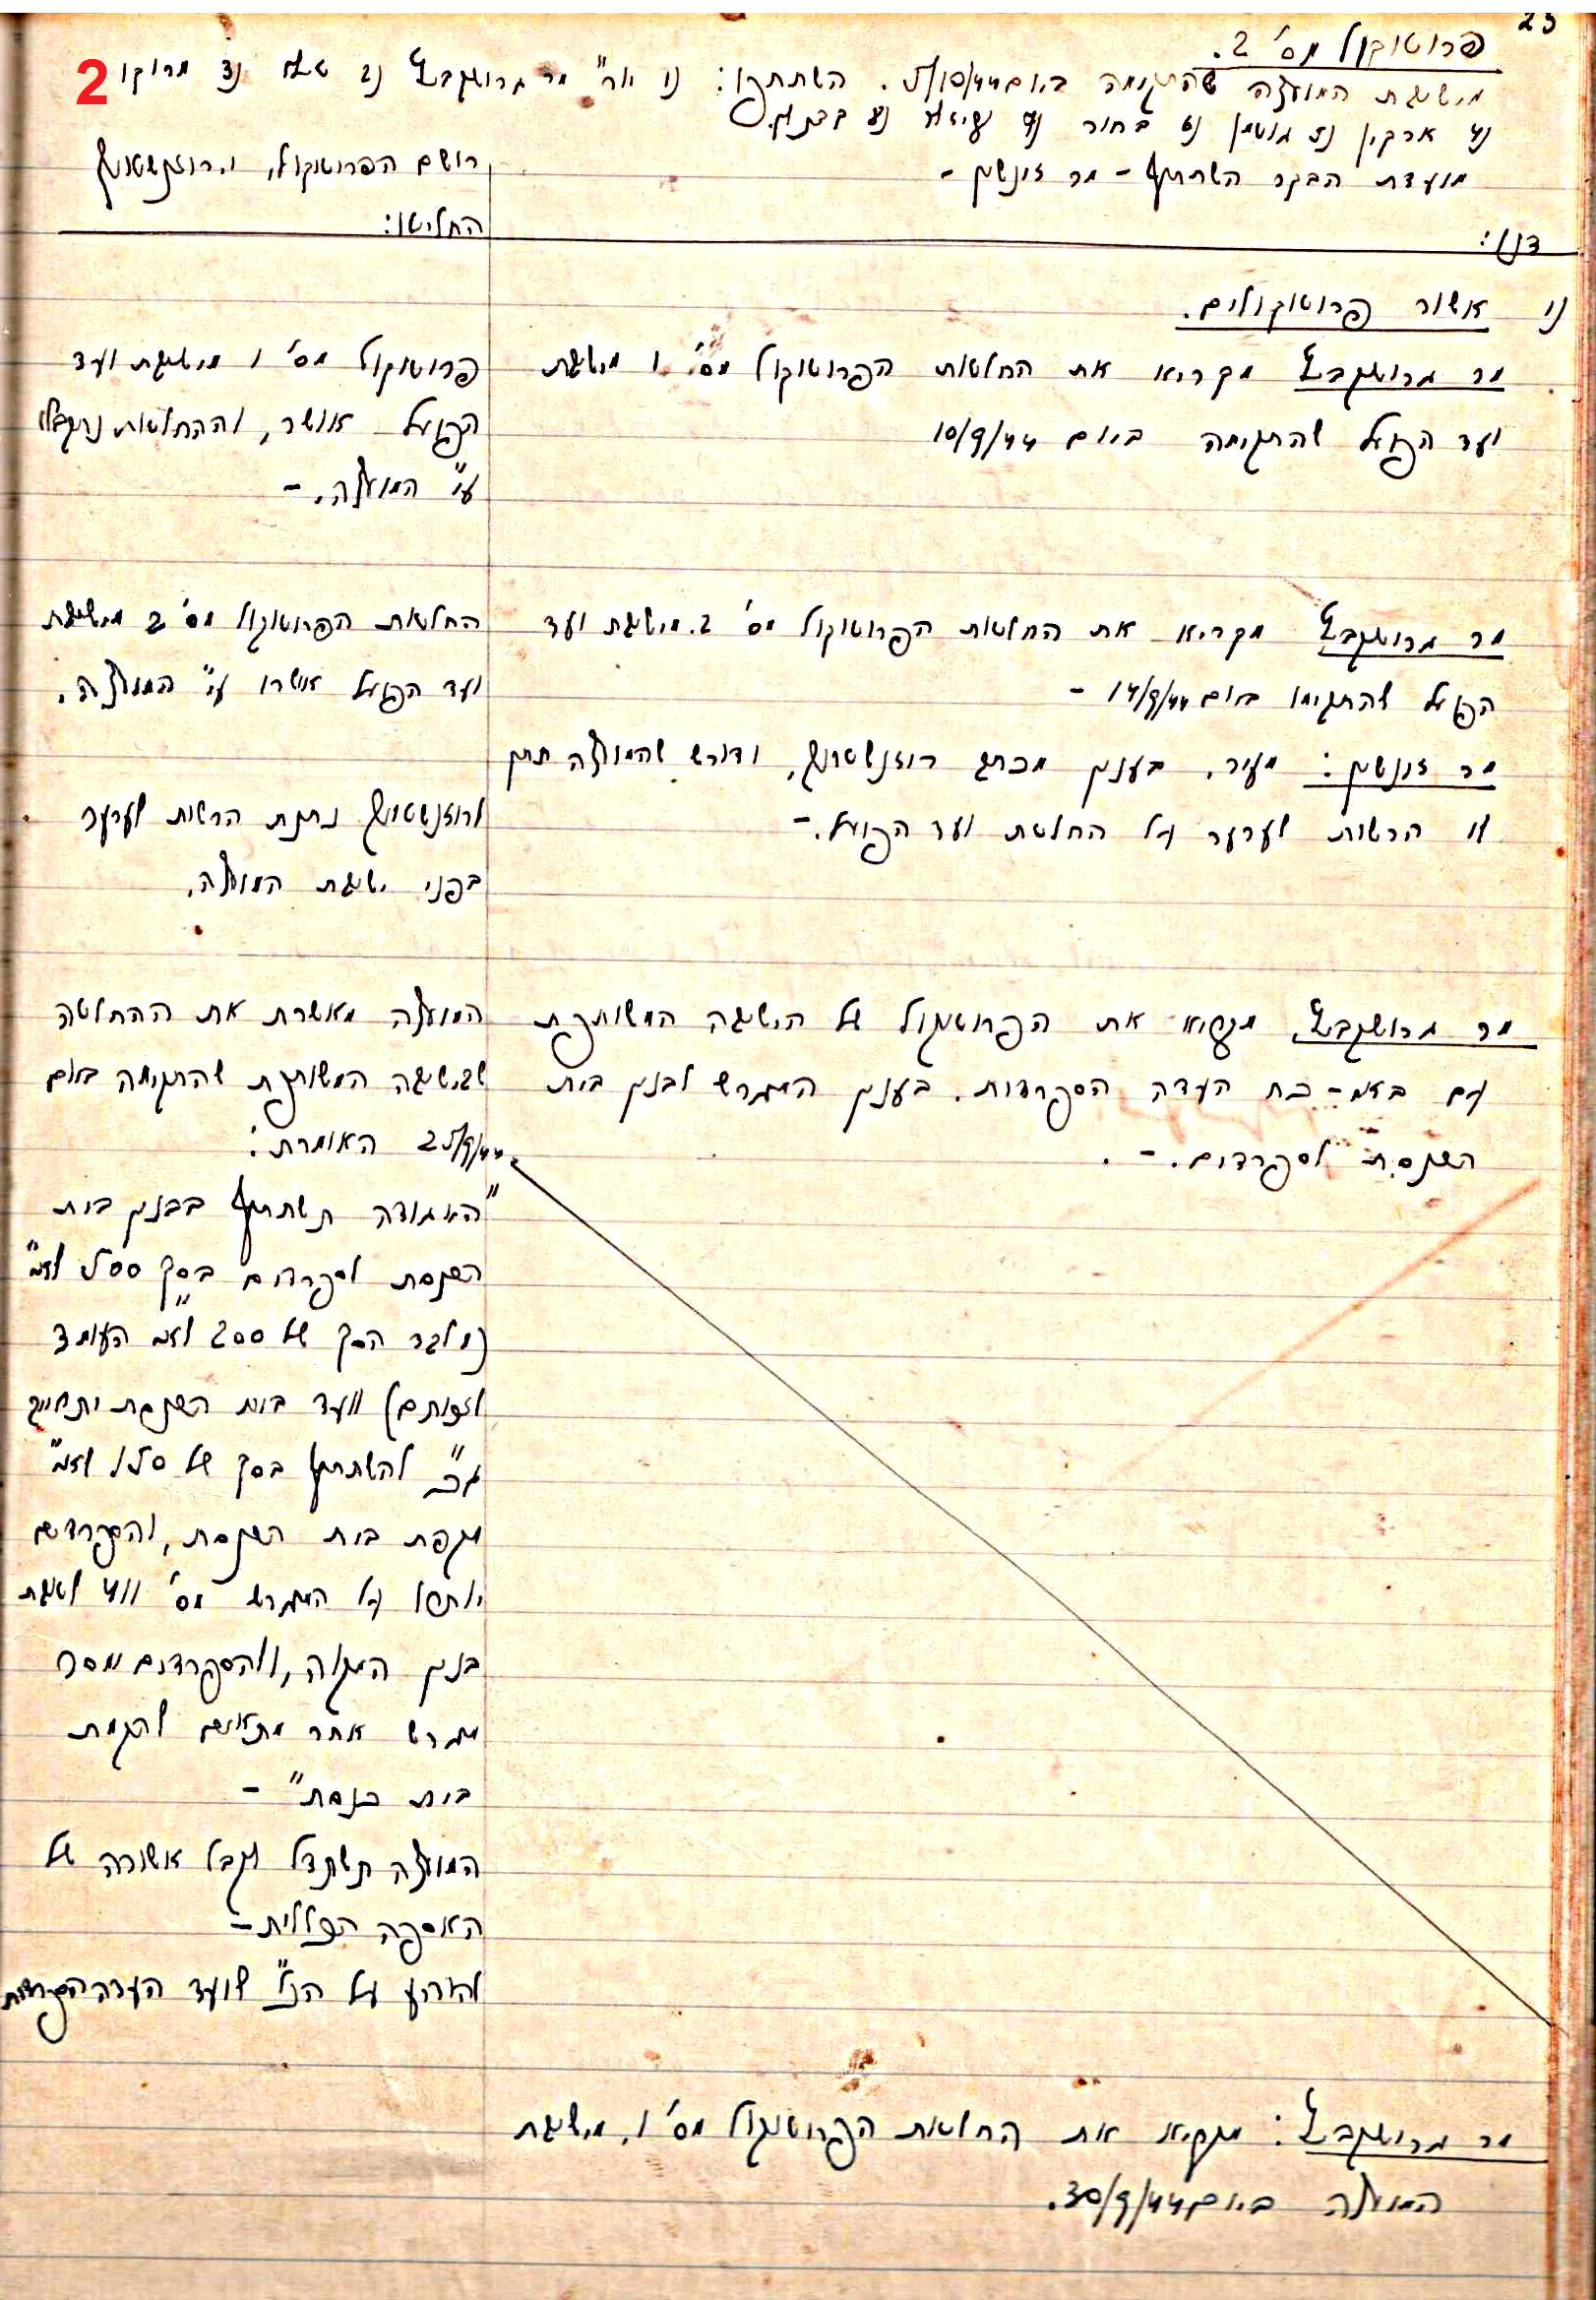 23
2
פרוטוקול מס' 2.
מישיבת המועצה שהתקימה ביום 5/10/44. השתתפו: 1) יור" מר מרושקביץ 2) 3) מרוקו
4) ארקין 5) גוטמן 6) בחור 7) 8)
מועדת הבקר השתתף - מר זונשין -
רושם הפרוטוקול, י. רוזנשטוף
דנו:
החליטו:
1) אשור פרוטוקולים.
מר מרושקביץ מקריא את החלטות הפרוטוקול מס' 1 מישיבת
ועד הפועל שהתקימה ביום 10/9/44
פרוטוקול מס' 1 מישיבת ועד
הפועל אושר, וההחלטות נתקבלו
ע"י המועצה. -
מר מרושקביץ מקריא את החלטות הפרוטוקול מס' 2. מישיבת ועד
הפועל שהתקימו ביום 14/9/44 -
החלטות הפרוטוקול מס' 2 מישיבת
ועד הפועל אושרו ע"י המועצה.
מר זונשין: מעיר, בענין מכתב רוזנשטרוף, ודורש שהמועצה תתן
לו הרשות לערער על החלטת ועד הפועל. -
לרוזנשטוף נתנת הרשות לערער
בפני ישיבת המועצה.
מר מרושקביץ מקריא את הפרוטוקול של הישיבה המשותפת
עם באי-כח העדה הספרדית. בענין המגרש לבנין בית
הכנסת לספרדים. -
המועצה מאשרת את ההחלטה
שבישיבה המשותפת שהתקימה ביום
25/9/44 האומרת:
"האגודה תשתתף בבנין בית
הכנסת לספרדים בסך 500 לא"י
(מלבד הסך של 200 לא"י העומד
לזכותם) וועד בית הכנסת יתחייב
ג"כ להשתתף בסך של 150 לא"י
מקפת בית הכנסת, והספרדים
יותרו על המגרש מס' 411 לטובת
בנין המקוה, ולהספרדים ימסר
מגרש אחר מתאים להקמת
בית כנסת" -
המועצה תשתדל לקבל אשורה של
האספה הכללית -
להודיע על הנ"ל לועד העדה הספרדית
מר מרושקביץ: מקריא את החלטות הפרוטוקול מס' 1. מישיבת
המועצה ביום 30/9/44.